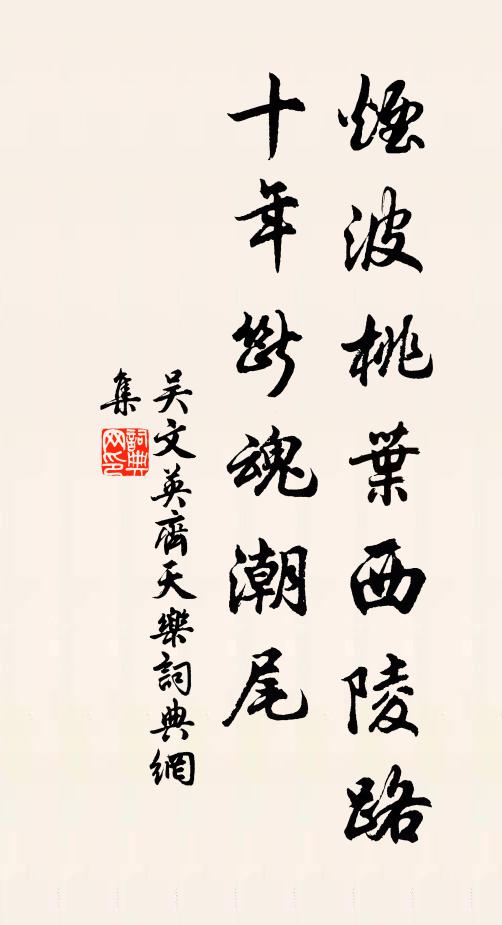 煙波桃葉西陵路
十年斷魂潮尾
吴文英齊天樂詞典網
集
詞典
网印